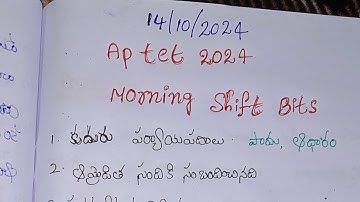 14/10/2024
Ap tet 2024
Morning Shift Bits
1. కుదురు పర్యాయపదాలు పాదు, ఆధారం
2. ఆమ్రేడిత సందికి సంబందించినది